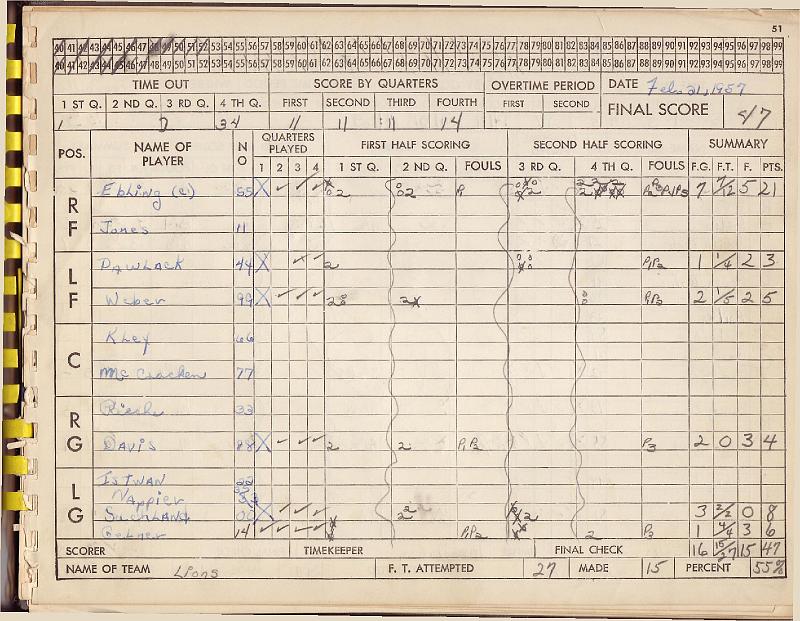 51
40 41 42 43 44 45 46 47 48 49 50 51 52 53 54 55 56 57 58 59 60 61 62 63 64 65 66 67 68 69 70 71 72 73 74 75 76 77 78 79 80 81 82 83 84 85 86 87 88 89 90 91 92 93 94 95 96 97 98 99
40 41 42 43 44 45 46 47 48 49 50 51 52 53 54 55 56 57 58 59 60 61 62 63 64 65 66 67 68 69 70 71 72 73 74 75 76 77 78 79 80 81 82 83 84 85 86 87 88 89 90 91 92 93 94 95 96 97 98 99
TIME OUT SCORE BY QUARTERS OVERTIME PERIOD DATE Feb. 21, 1957
1 ST Q. 2 ND Q. 3 RD Q. 4 TH Q. FIRST SECOND THIRD FOURTH FIRST SECOND FINAL SCORE 47
1 2 34 11 11 11 14
POS. NAME OF PLAYER NO QUARTERS PLAYED FIRST HALF SCORING SECOND HALF SCORING SUMMARY
1 2 3 4 1 ST Q. 2 ND Q. FOULS 3 RD Q. 4 TH Q. FOULS F.G. F.T. F. PTS.
RF Ebling (c) 55 X 7 7/12 5 21
Jones 11
LF Pawlack 44 X 2 P1P2 1 1/4 2 3
Weber 99 X 2 1/5 2 5
C Kley 66
McCracken 77
RG 33
Davis 88 X 2 2 P1P2 P3 2 0 3 4
LG Istwan
Nappier
00 X 3 2/2 0 8
14 P1P2 2 P3 1 4/4 3 6
SCORER TIMEKEEPER FINAL CHECK 16 15/27 15 47
NAME OF TEAM Lions F. T. ATTEMPTED 27 MADE 15 PERCENT 55%